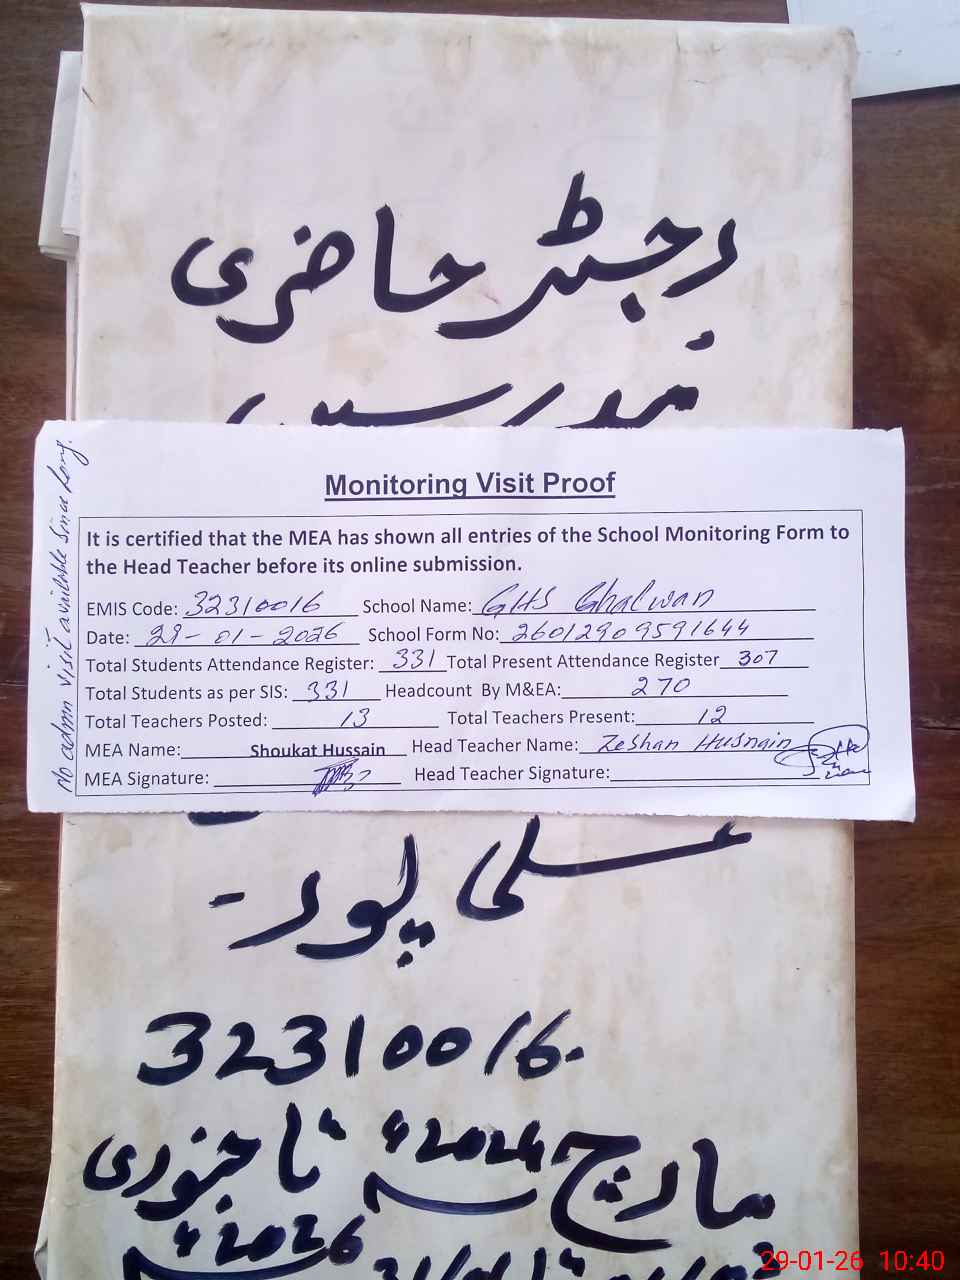 رجسٹر حاضری
Monitoring Visit Proof
It is certified that the MEA has shown all entries of the School Monitoring Form to
the Head Teacher before its online submission.
EMIS Code: 32310016 School Name: GHS Ghalwan
Date: 29-01-2026 School Form No: 26012909591644
Total Students Attendance Register: 331 Total Present Attendance Register 307
Total Students as per SIS: 331 Headcount By M&EA: 270
Total Teachers Posted: 13 Total Teachers Present: 12
MEA Name: Shoukat Hussain Head Teacher Name: Zeshan Husnain
MEA Signature: Head Teacher Signature:
No admn visit available since long.
علی پور۔
32310016
مارچ 2024ء تا جنوری
2026ء
29-01-26 10:40